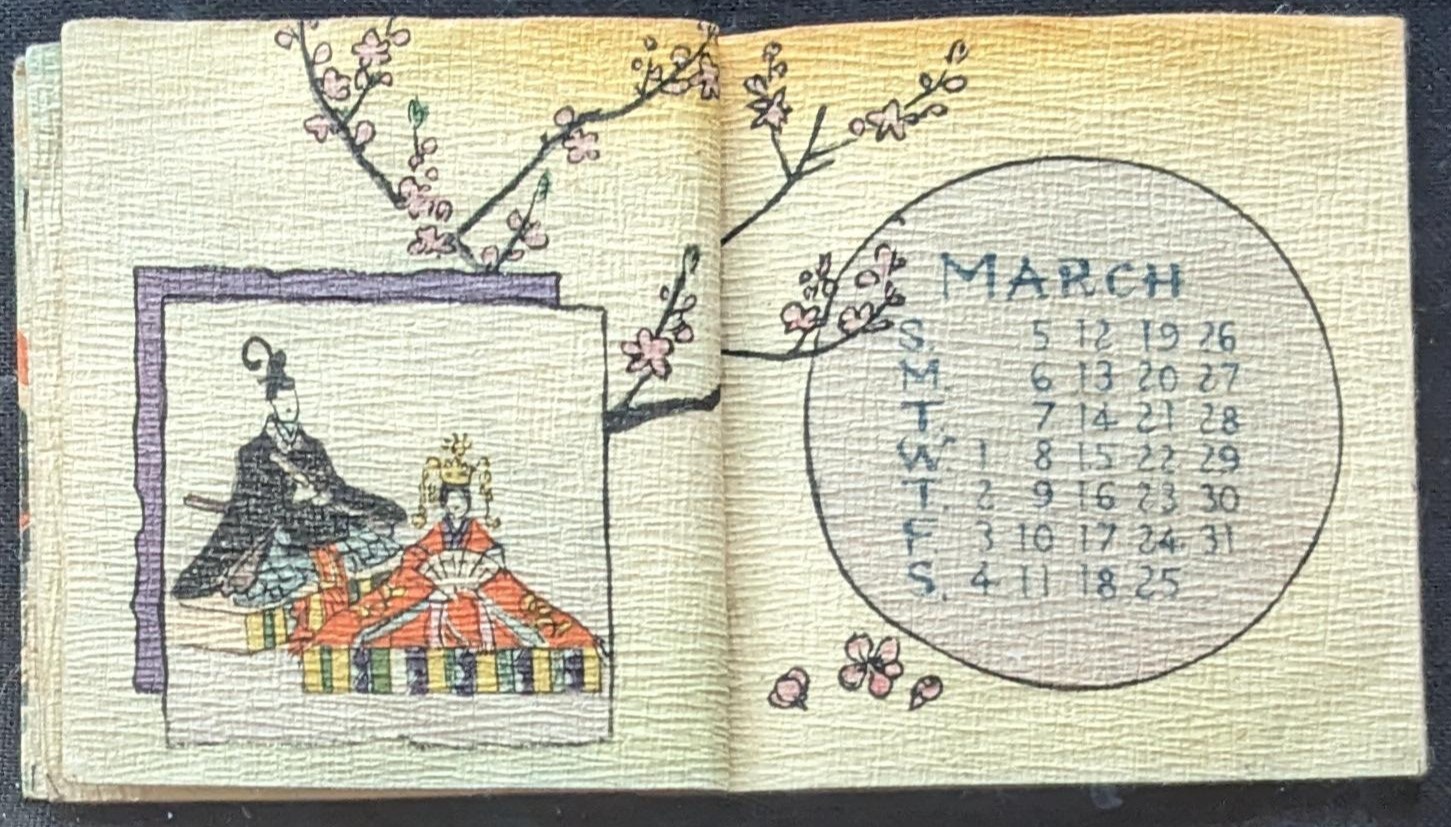 MARCH
S. 5 12 19 26
M. 6 13 20 27
T. 7 14 21 28
W. 1 8 15 22 29
T. 2 9 16 23 30
F. 3 10 17 24 31
S. 4 11 18 25